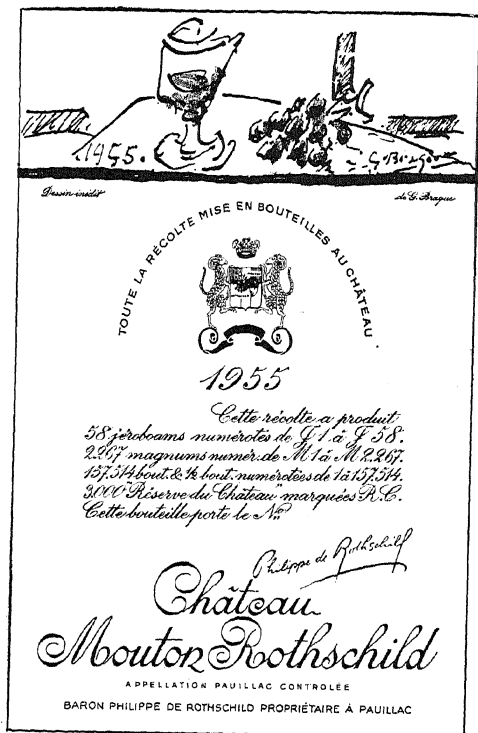 1955.
G. Braque
Dessin inédit
de G. Braque
TOUTE LA RÉCOLTE MISE EN BOUTEILLES AU CHÂTEAU
1955
Cette récolte a produit
58 jéroboams numérotés de J 1 à J 58.
2.267 magnums numér. de M 1 à M 2.267.
157.514 bout. & ½ bout. numérotées de 1 à 157.514.
3.000 Réserve du Château marquées R.C.
Cette bouteille porte le No
Philippe de Rothschild
Château
Mouton Rothschild
APPELLATION PAUILLAC CONTROLÉE
BARON PHILIPPE DE ROTHSCHILD PROPRIÉTAIRE À PAUILLAC